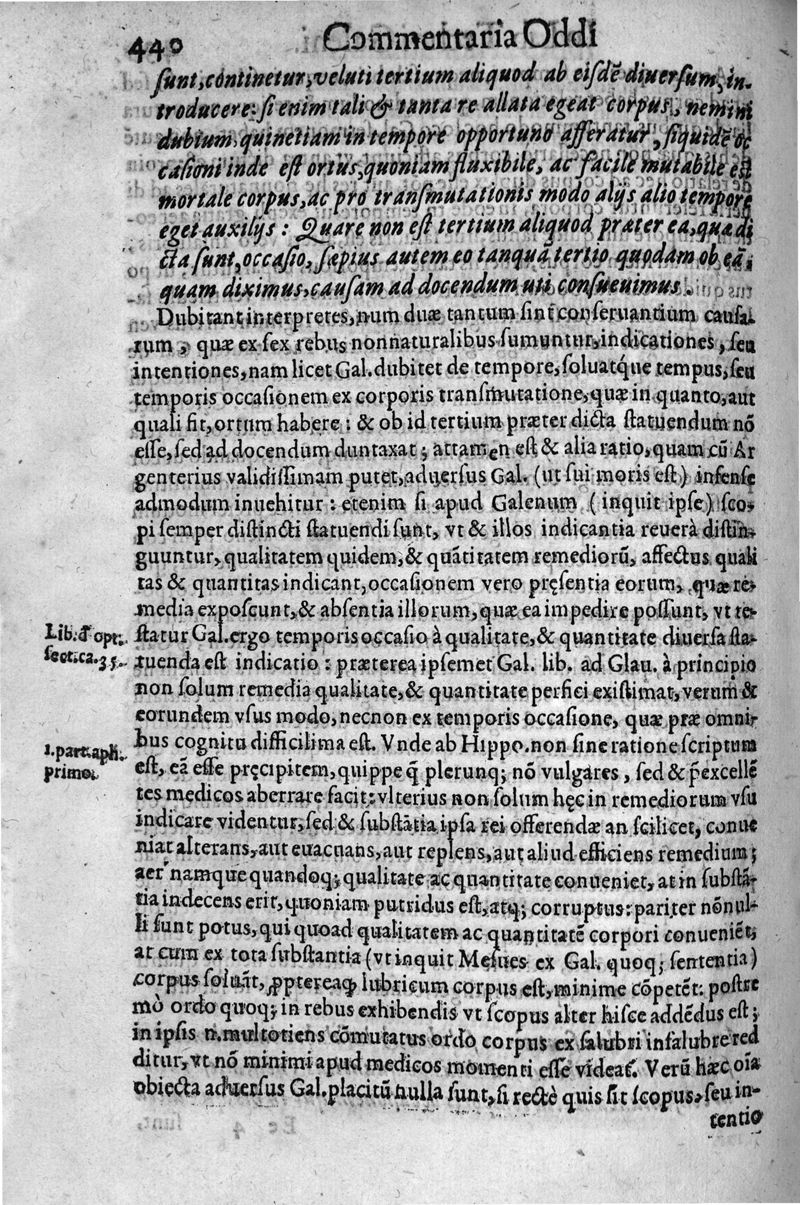 440 Commentaria Oddi
sunt, continetur, veluti tertium aliquod ab eisdē diuersum, in-
troducere: si enim tali & tanta re allata egeat corpus, nemini
dubium, quinetiam in tempore opportuno afferatur, siquidē oc
casioni inde est ortus, quoniam fluxibile, ac facilè mutabile est
mortale corpus, ac pro transmutationis modo alijs alio tempore
eget auxilijs: Quare non est tertium aliquod præter ea, quæ di
cta sunt, occasio, sæpius autem eo tanquā tertio quodam ob eā,
quam diximus, causam ad docendum uti consueuimus.
Dubitant interpretes, num duæ tantum sint conseruantium causa
rum, quæ ex sex rebus nonnaturalibus sumuntur, indicationes, seu
intentiones, nam licet Gal. dubitet de tempore, soluatq́ue tempus, seu
temporis occasionem ex corporis transmutatione, quæ in quanto, aut
quali fit, ortum habere: & ob id tertium præter dicta statuendum nō
esse, sed ad docendum duntaxat; attamen est & alia ratio, quam cū Ar
genterius validissimam putet, aduersus Gal. (ut sui moris est) infense
admodum inuehitur: etenim si apud Galenum (inquit ipse) sco-
pi semper distincti statuendi sunt, vt & illos indicantia reuerà distin-
guuntur, qualitatem quidem, & quātitatem remediorū, affectus quali
tas & quantitas indicant, occasionem vero pręsentia eorum, quæ re-
media exposcunt, & absentia illorum, quæ ea impedire possunt, vt te-
Lib. d opt. statur Gal. ergo temporis occasio à qualitate, & quantitate diuersa sta-
sect. ca. 35. tuenda est indicatio: præterea ipsemet Gal. lib. ad Glau. à principio
non solum remedia qualitate, & quantitate perfici existimat, verum &
eorundem vsus modo, necnon ex temporis occasione, quæ præ omni-
1. part. aph. bus cognitu difficilima est. Vnde ab Hippo. non sine ratione scriptum
primo. est, eā esse pręcipitem, quippe q̄ plerunq; nō vulgares, sed & p̄excellē
tes medicos aberrare facit: vlterius non solum hęc in remediorum vsu
indicare videntur, sed & substātia ipsa rei offerendæ an scilicet, conue
niat alterans, aut euacuans, aut replens, aut aliud efficiens remedium;
aer namque quandoq; qualitate ac quantitate conueniet, at in substā-
tia indecens erit, quoniam putridus est, atq; corruptus: pariter nōnul-
li sunt potus, qui quoad qualitatem ac quantitatē corpori conueniēt,
at cum ex tota substantia (vt inquit Mesues ex Gal. quoq; sententia)
corpus soluāt, ꝓptereaq lubricum corpus est, minime cōpetēt: postre
mò ordo quoq; in rebus exhibendis vt scopus alter hisce addēdus est;
in ipsis n. multotiens cōmutatus ordo corpus ex salubri insalubre red
ditur, vt nō minimi apud medicos momenti esse videat. Verū hæc oīa
obiecta aduersus Gal. placitū nulla sunt, si rectè quis sit scopus, seu in-
tentio